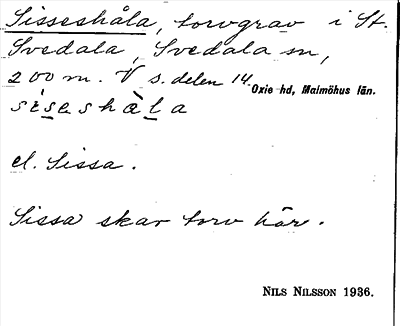 Sisseshåla, torvgrav i St.
Svedala, Svedala sn,
200 m. V s. delen 14.
Oxie hd, Malmöhus län.
siseshåla
el. Sissa.
Sissa skar torv här.
NILS NILSSON 1936.